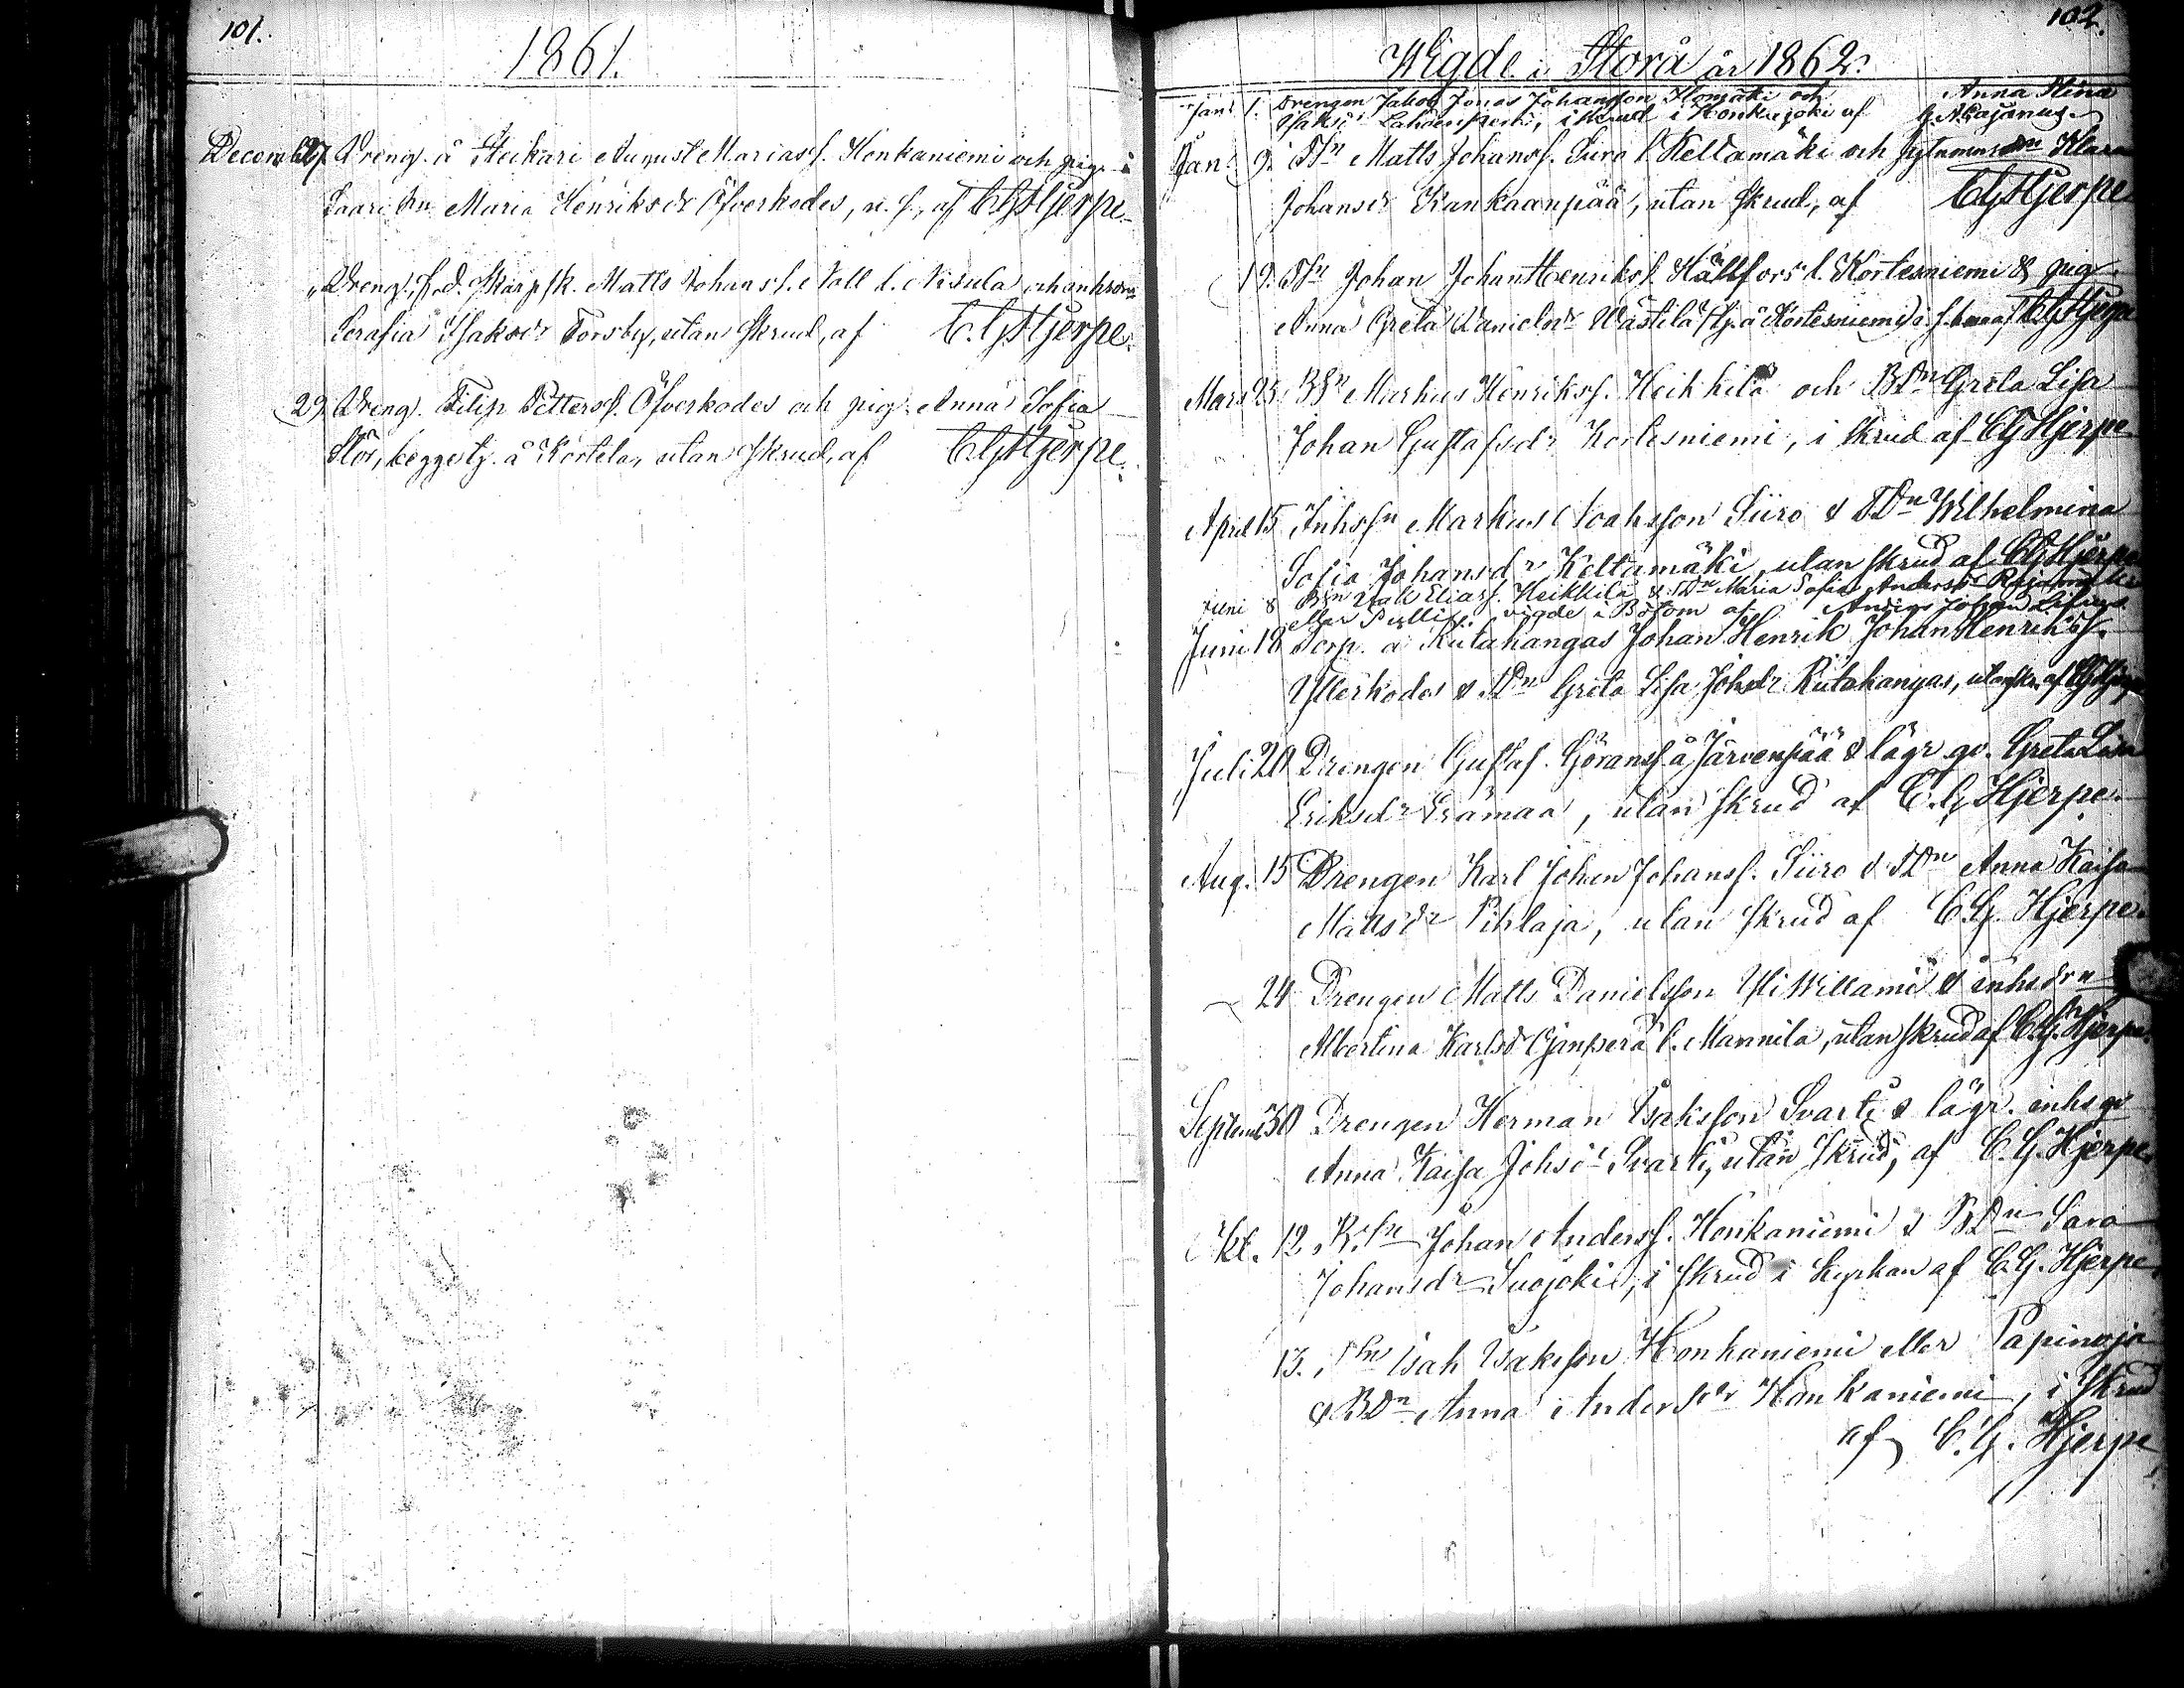 101.
1861.
Decemb. 27 Dreng. å Steikari August Mariasf. Honkaniemi och pig. å
Saari Maria Henriksdr Öfverkodes, u. s., af CGHjerpe
" Dreng., f.d. Skarpsk. Matts Johansf. Noll l. Nisula och
Serafia Isaksdr Forsby, utan skrud, af C.GHjerpe.
29. Dreng. Filip Pettersf. Öfverkodes och pig. Anna Sofia
Stor, begge tj. å Kortela, utan skrud, af CGHjerpe.
102.
Wigde i Storå år 1862.
Jan. 1. Drengen Jakob Jonas Johansson och Anna Stina
Isaksdr i skrud i Honkajoki af Cajanus.
Jan. 9. Matts Johansf. Siiro l. Keltamäki och Klara
Johansdr Kankaanpää, utan skrud, af CGHjerpe
19. Johan JohanHenriksf. Hällfors l. Kortesniemi & pig.
Anna Greta Danielsdr Wästilä (tj. å Kortesniemi) CGHjerpe
Mars 25. BSn Markus Henriksf. Heikkilä och BDn Greta Lisa
Johan Gustafsdr Kortesniemi, i skrud af CG Hjerpe
April 15 Inhsn Markus Noaksson Siiro & TDn Wilhelmina
Sofia Johansdr Keltamäki, utan skrud af CGHjerpe
Juni 8 BSn Isak Eliasf. Heikkilä & TDn Maria Sofia Andersdr
eller vigde i Bötom af Anders Johan
Juni 18 Torp. å Rutakangas Johan Henrik JohanHenriksf.
Ytterkodes & TDn Greta Lisa Johsdr Rutakangas, utan skr. af CGHjerpe
Juli 20 Drengen Gustaf Göransf. å Järvenpää & lägr. qv. Greta Lisa
Eriksdr Erämaa, utan skrud af C.G Hjerpe.
Aug. 15 Drengen Karl Johan Johansf. Siiro & TDn Anna Kaisa
Mattsdr Pihlaja, utan skrud af C.G. Hjerpe.
24 Drengen Matts Danielsson YliWillamo & inhsdrn
Albertina Karlsdr l. Mannila, utan skrud af C.G. Hjerpe.
Septemb. 30 Drengen Herman Isaksson Svarti & lägr. inhs qv
Anna Kaisa Johsdr Svarti, utan skrud, af C.G. Hjerpe.
Okt. 12. BSn Johan Andersf. Honkaniemi & BDn Sara
Johansdr Suojoki, i skrud i kyrkan af C.G. Hjerpe.
13. Isak Isaksson Honkaniemi eller Papinoja
& BDn Anna Andersdr Honkaniemi, i skrud
af C.G. Hjerpe